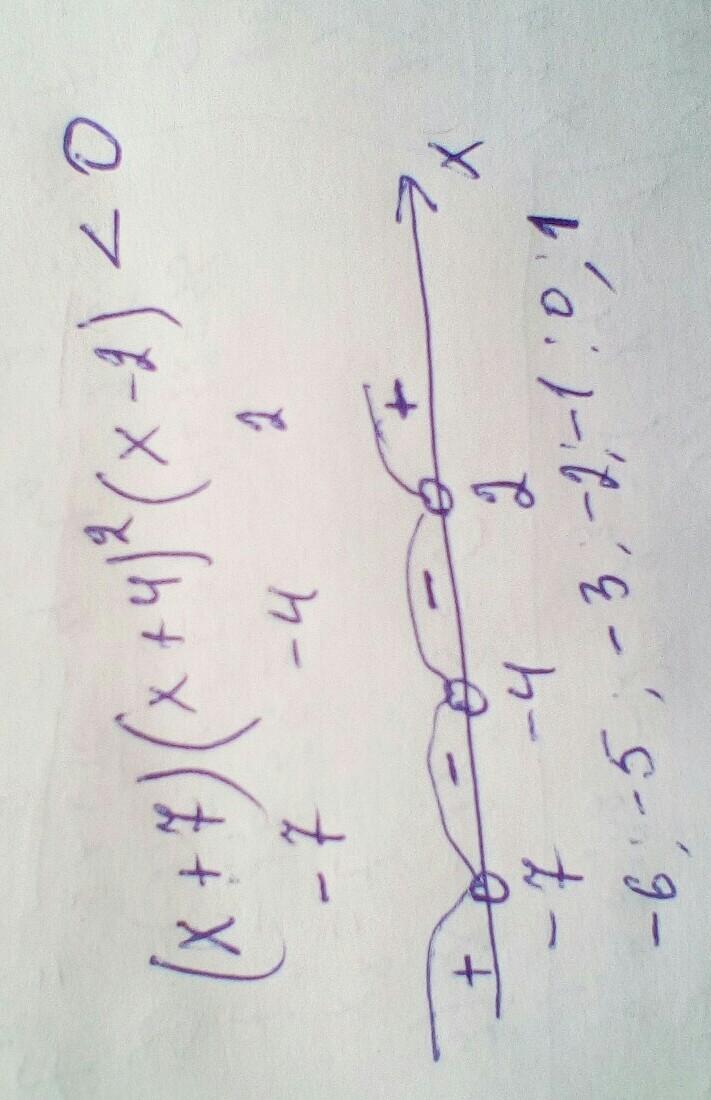 (x+7)(x+4)²(x-2) < 0
-7 -4 2
+ - - +
-7 -4 2 x
-6; -5; -3; -2; -1; 0; 1